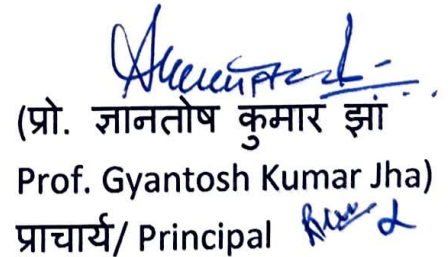 (प्रो. ज्ञानतोष कुमार झां
Prof. Gyantosh Kumar Jha)
प्राचार्य/ Principal